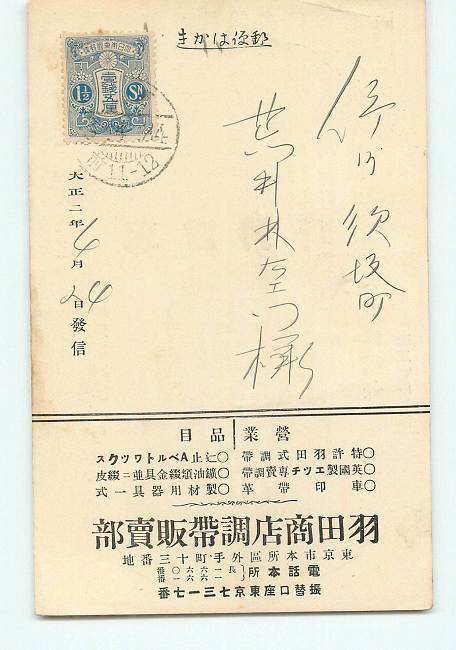 郵便はかき
大日本帝國郵便
壹錢五厘
1½ Sn.
11-12
須坂町
大正二年4月 日發信
營業品目
○特許羽田式調帶
○英國製エツチ専賣調帶
○車印帶革
○辷止Aベルトワツクス
○鑛油類綴金具並ニ綴皮
○製材用器具一式
羽田商店調帶販賣部
東京市本所區外手町十三番地
電話本所
振替口座東京七三一七番